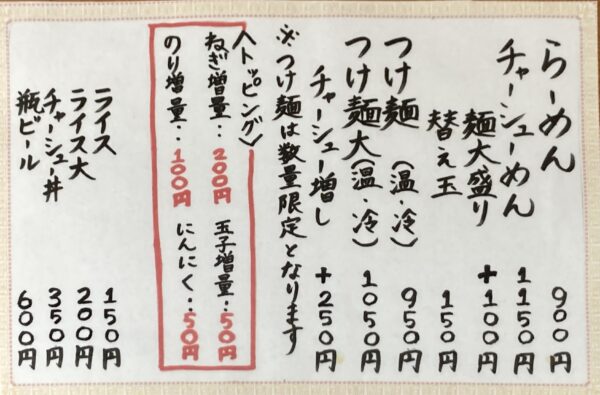 らーめん 900円
チャーシューめん 1150円
麺大盛り +100円
替え玉 150円
つけ麺(温・冷) 950円
つけ麺大(温・冷) 1050円
チャーシュー増し +250円
※つけ麺は数量限定となります
〈トッピング〉
ねぎ増量‥200円 玉子増量‥50円
のり増量‥100円 にんにく‥50円
ライス 150円
ライス大 200円
チャーシュー丼 350円
瓶ビール 600円